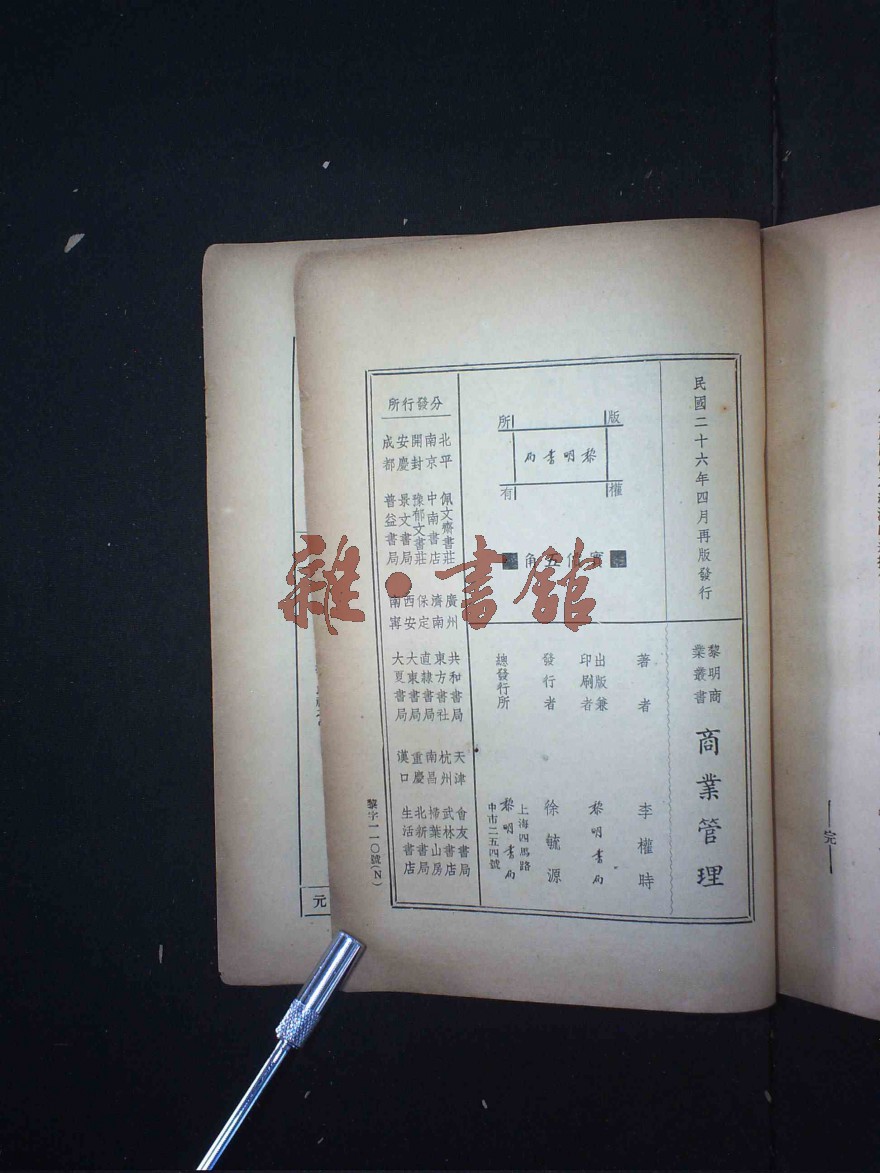 民國二十六年四月再版發行
版權所有
黎明書局
實價五角
黎明商業叢書
商業管理
著者 李權時
出版兼印刷者 黎明書局
發行者 徐毓源
總發行所 上海四馬路中市二五四號 黎明書局
分發行所
北平 佩文齋書莊
南京 中南書店
開封 豫郁文書莊
安慶 景文書局
成都 普益書局
廣州 共和書局
濟南 東方書社
保定 直隸書局
西安 大東書局
南寧 大夏書局
天津 會友書局
杭州 武林書店
南昌 掃葉山房
重慶 北新書局
漢口 生活書店
黎字一一〇號(N)
完
元
雜·書館